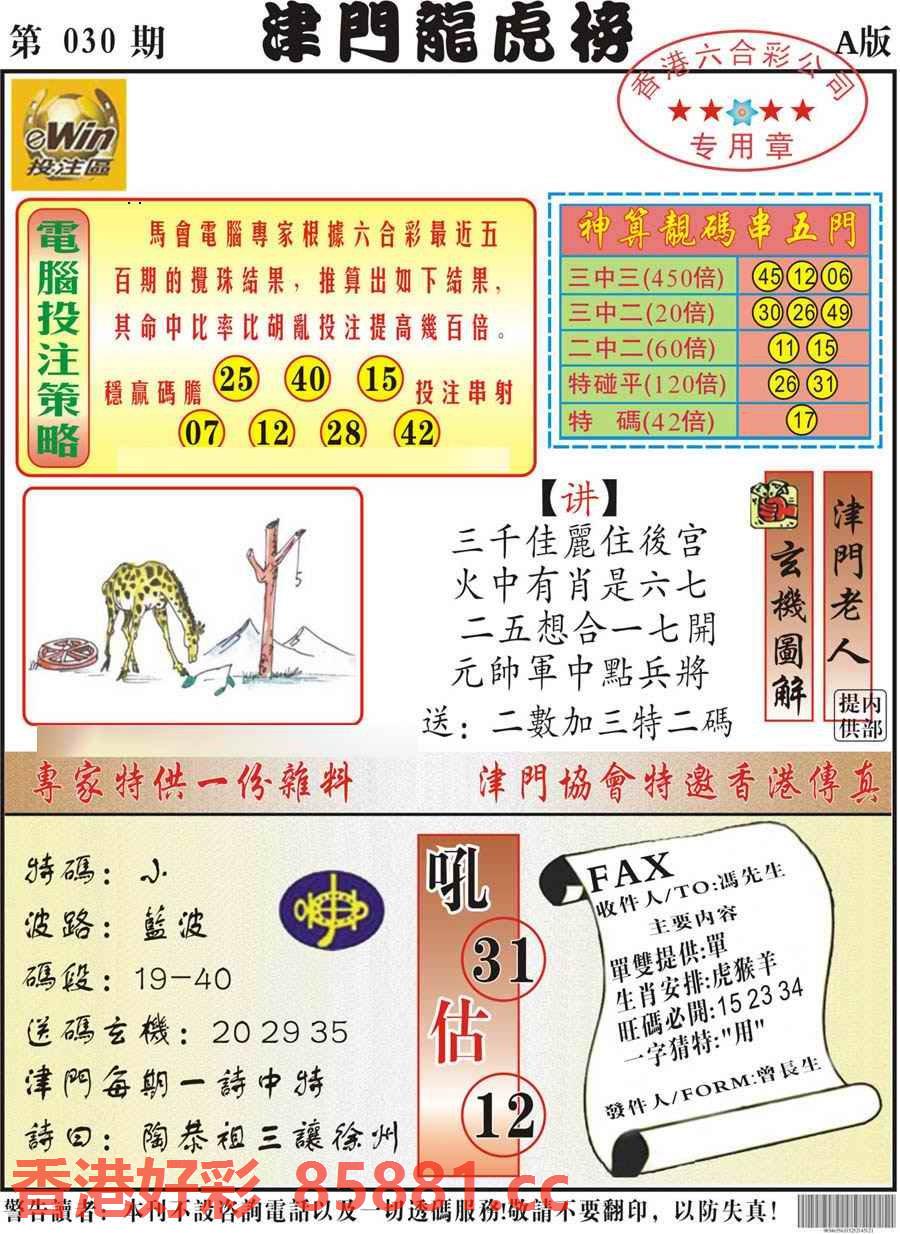 第 030 期
津門龍虎榜
A版
香港六合彩公司
专用章
eWin
投注區
電腦投注策略
馬會電腦專家根據六合彩最近五
百期的攪珠結果，推算出如下結果，
其命中比率比胡亂投注提高幾百倍。
穩贏碼膽 25 40 15 投注串射
07 12 28 42
神算靚碼串五門
三中三(450倍) 45 12 06
三中二(20倍) 30 26 49
二中二(60倍) 11 15
特碰平(120倍) 26 31
特 碼(42倍) 17
5
【讲】
三千佳麗住後宫
火中有肖是六七
二五想合一七開
元帥軍中點兵將
送：二數加三特二碼
玄機圖解
津門老人
内部提供
專家特供一份雜料
津門協會特邀香港傳真
特碼：小
波路：藍波
碼段：19-40
送碼玄機：20 29 35
津門每期一詩中特
詩曰：陶恭祖三讓徐州
吼
31
估
12
FAX
收件人/TO:馮先生
主要内容
單雙提供:單
生肖安排:虎猴羊
旺碼必開:15 23 34
一字猜特:"用"
發件人/FORM:曾長生
香港好彩 85881.cc
警告讀者：本刊不設咨詢電話以及一切透碼服務!敬請不要翻印，以防失真!